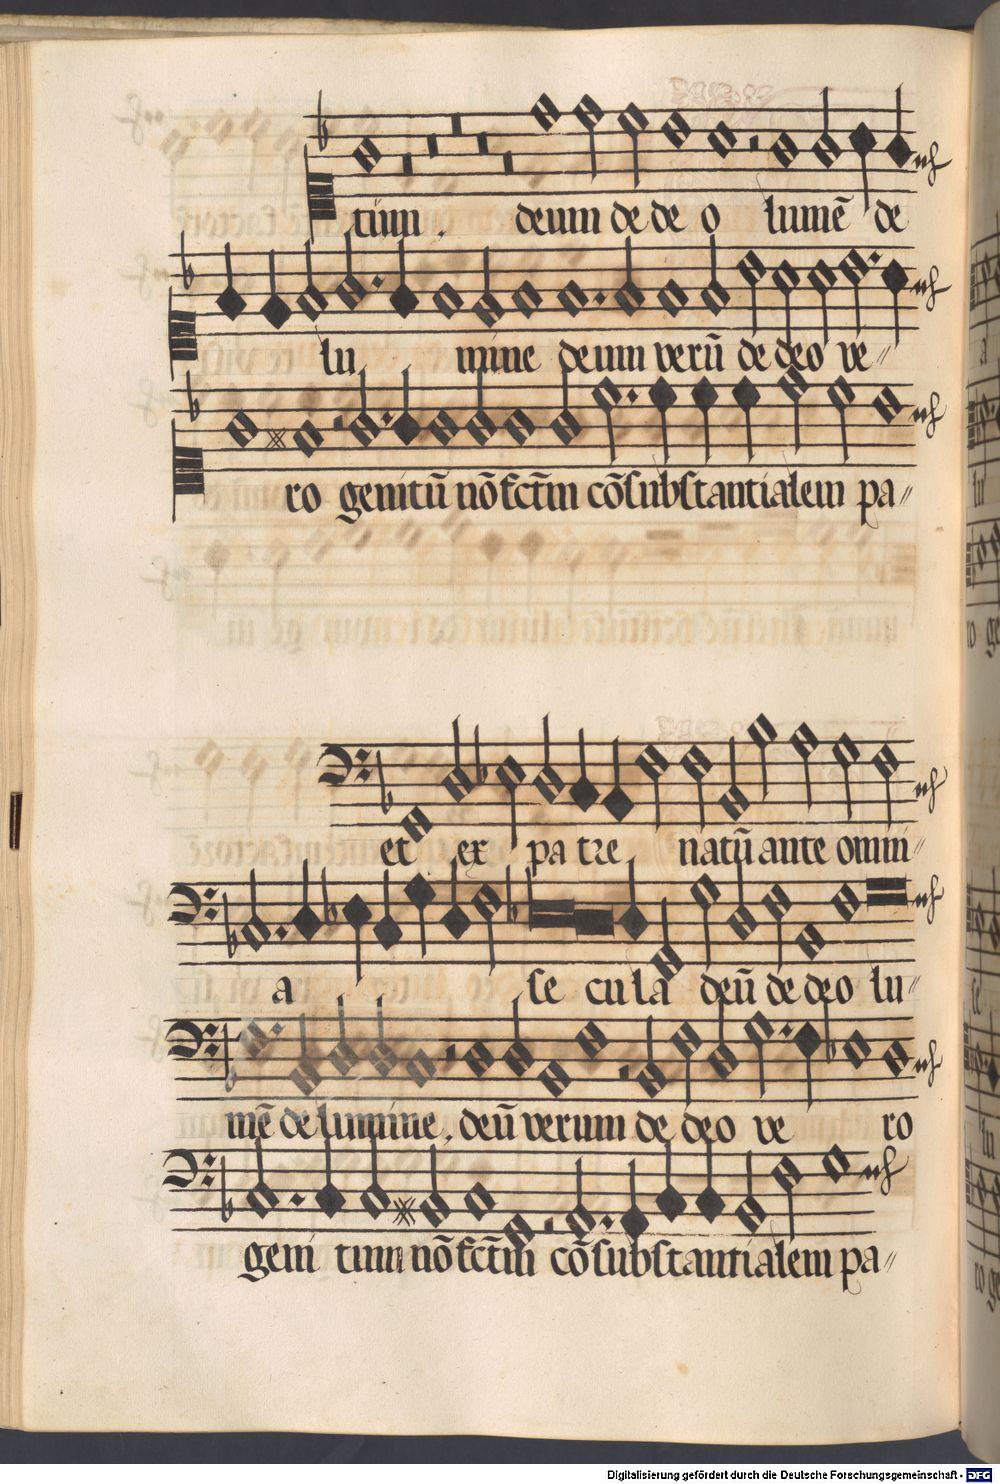 tum. deum de de o lumē de
lu mine deum verū de deo ve〃
ro genitū nō fct̄m cōsubstantialem pa〃
et ex pa tre natū ante omni〃
a se cula deū de deo lu〃
mē de lumine, deū verum de deo ve ro
geni tum nō fct̄m cōsubstantialem pa〃
Digitalisierung gefördert durch die Deutsche Forschungsgemeinschaft - DFG